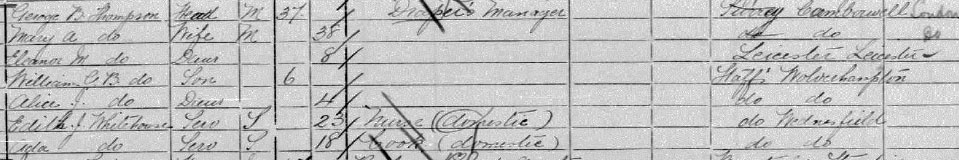 George B Thompson Head M 37 Draper's Manager Surrey Camberwell London
Mary A do Wife M 38 do do do
Eleanor M do Daur 8 Leicester Leicester
William C B do Son 6 Staffs Wolverhampton
Alice J. do Daur 4 do do
Edith J Whitehouse Serv S 23 Nurse (domestic) do Wednesfield
Ada do Serv S 18 Cook (domestic) do do